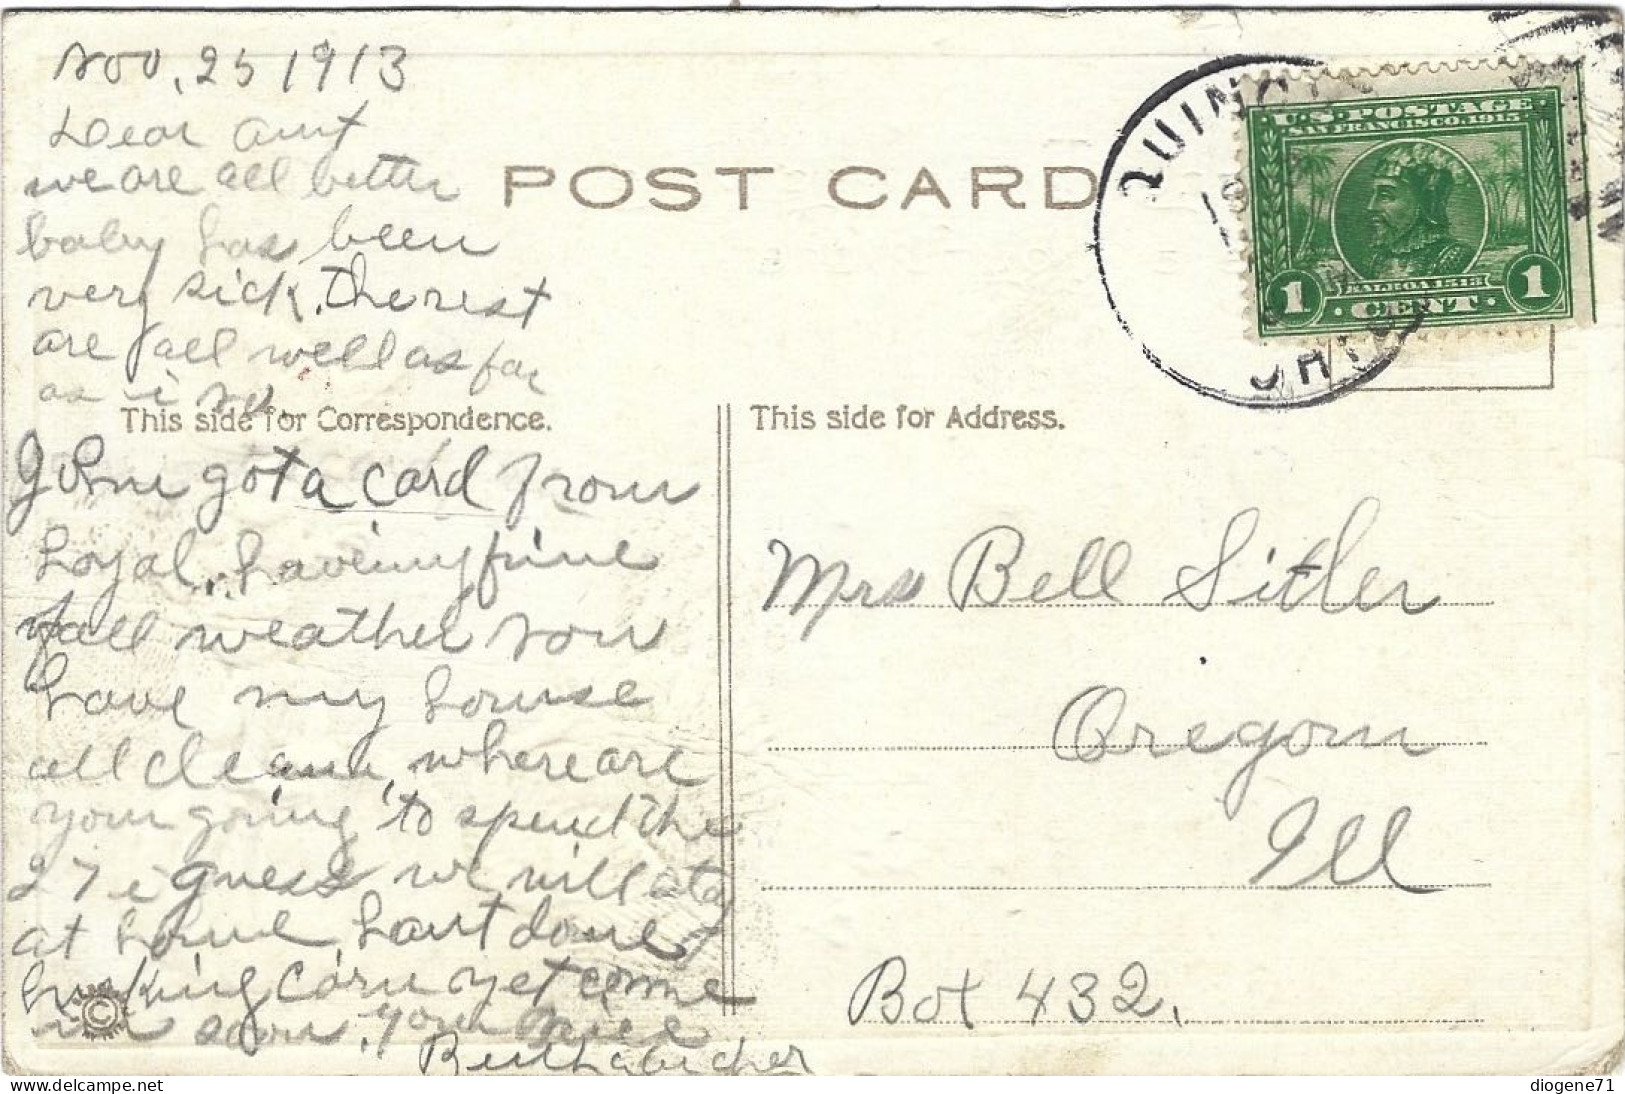 Nov, 25 1913
Dear aunt
we are all better
baby has been
very sick. the rest
are all well as far
as i no.
POST CARD
QUINCY
OHIO
U.S. POSTAGE
SAN FRANCISCO, 1915
BALBOA 1513
1 CENT 1
This side for Correspondence.
This side for Address.
got a card from
Loyal, haveing fine
fall weather now
have my house
all clean, where are
your going to spend the
27 i guess we will stay
at home, hant done
husking corn yet come
in soon, your niece
Mrs Bell Sitler
Oregon
Ill
Box 432.
©
diogene71